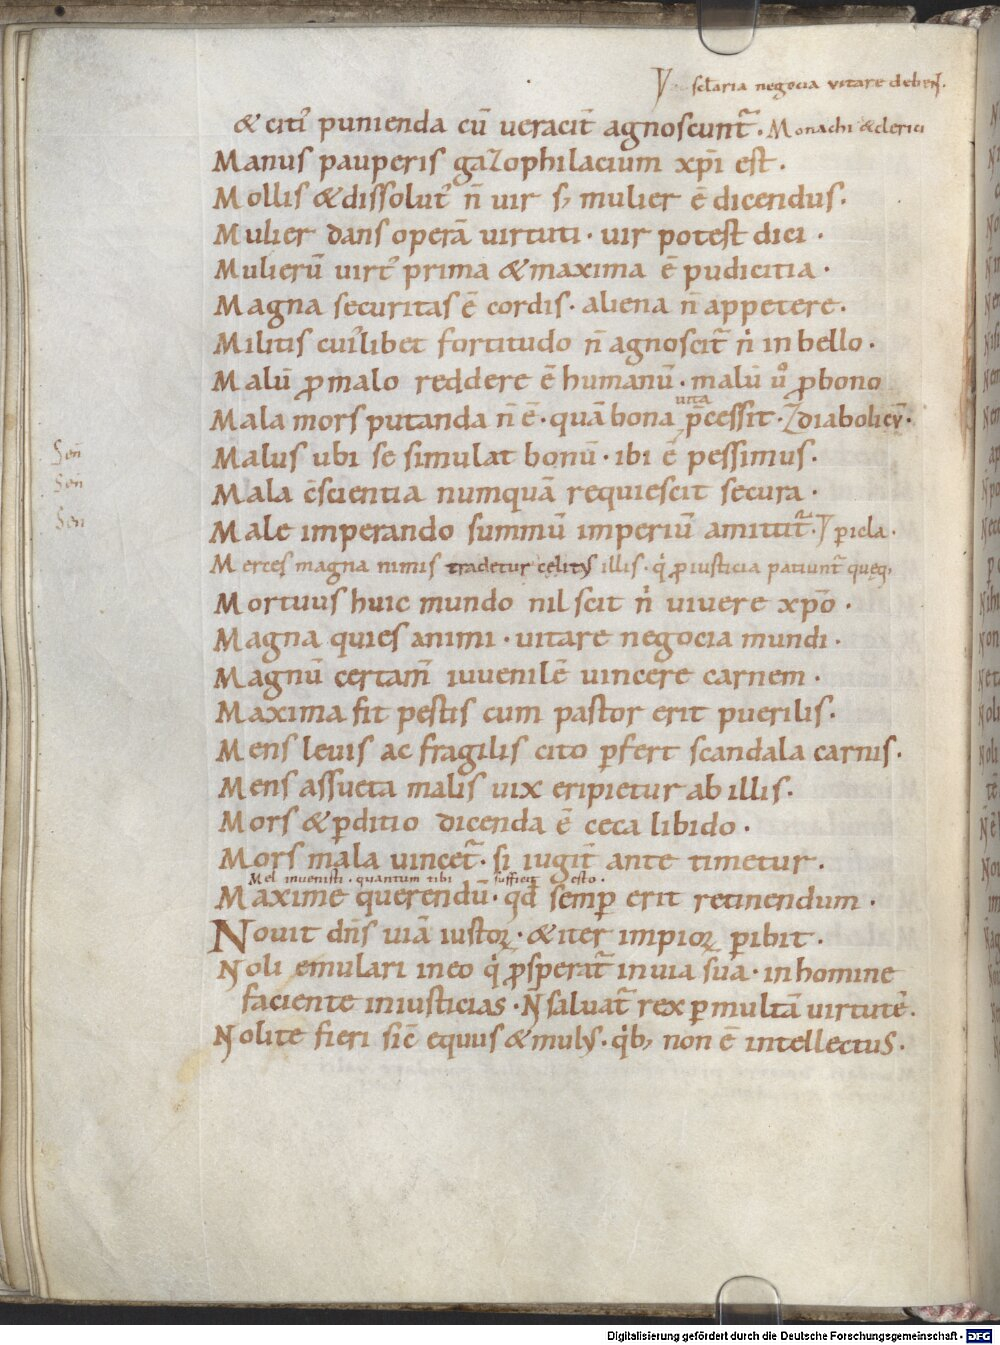 sclaria negocia vitare deben̄t.
& citi᾽ punienda cū ueracit̄ agnoscunt᷑. Monachi & clerici
Manus pauperis gazophilacium xp̄i est.
Mollis & dissolut᾽ n̄ uir s; mulier ē dicendus.
Mulier dans operā uirtuti. uir potest dici.
Mulierū uirt᾽ prima & maxima ē pudicitia.
Magna securitas ē cordis. aliena n̄ appetere.
Militis cui᾽libet fortitudo n̄ agnoscit᷑ n̍ in bello.
Malū ꝓ malo reddere ē humanū. malū u᷎ ꝓ bono
uita
Mala mors putanda n̄ ē. quā bona p̄cessit. diabolicū.
Sen̄
Malus ubi se simulat bonū. ibi ē pessimus.
Sen̄
Mala c̄scientia numquā requiescit secura.
Sen
Male imperando summū imperiū amittit᷑. ꝑicla.
Merces magna nimis tradetur celitus illis. q̍ ꝓ iusticia patiunt᷑ quęq;
Mortuus huic mundo nil scit n̍ uiuere xp̄o.
Magna quies animi. uitare negocia mundi.
Magnū certam̄ iuuenilē uincere carnem.
Maxima fit pestis cum pastor erit puerilis.
Mens leuis ac fragilis cito ꝑfert scandala carnis.
Mens assueta malis uix eripietur ab illis.
Mors & ꝑditio dicenda ē ceca libido.
Mors mala uincet᷑. si iugit̄ ante timetur.
Mel inuenisti. quantum tibi sufficit esto.
Maxime querendū. qd̄ semꝑ erit retinendum.
Nouit dn̄s uiā iustoꝝ. & iter impioꝝ ꝑibit.
Noli emulari in eo q̍ ꝓsperat᷑ in uia sua. in homine
faciente iniusticias. N̄ saluat᷑ rex ꝑ multā uirtutē.
Nolite fieri sic̄ equus & mulus. q̍b; non ē intellectus.